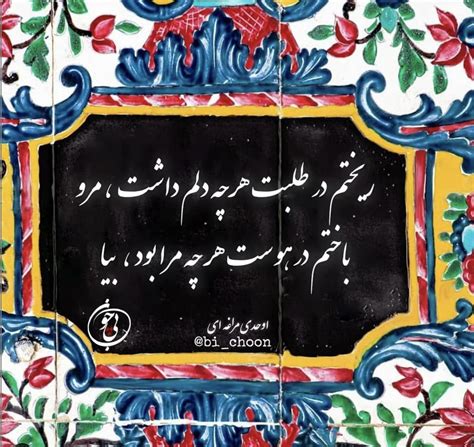 ریختم در طلبت هرچه دلم داشت ، مرو
باختم در هوست هرچه مرا بود ، بیا
اوحدی مراغه ای
@bi_choon
بی‌چون